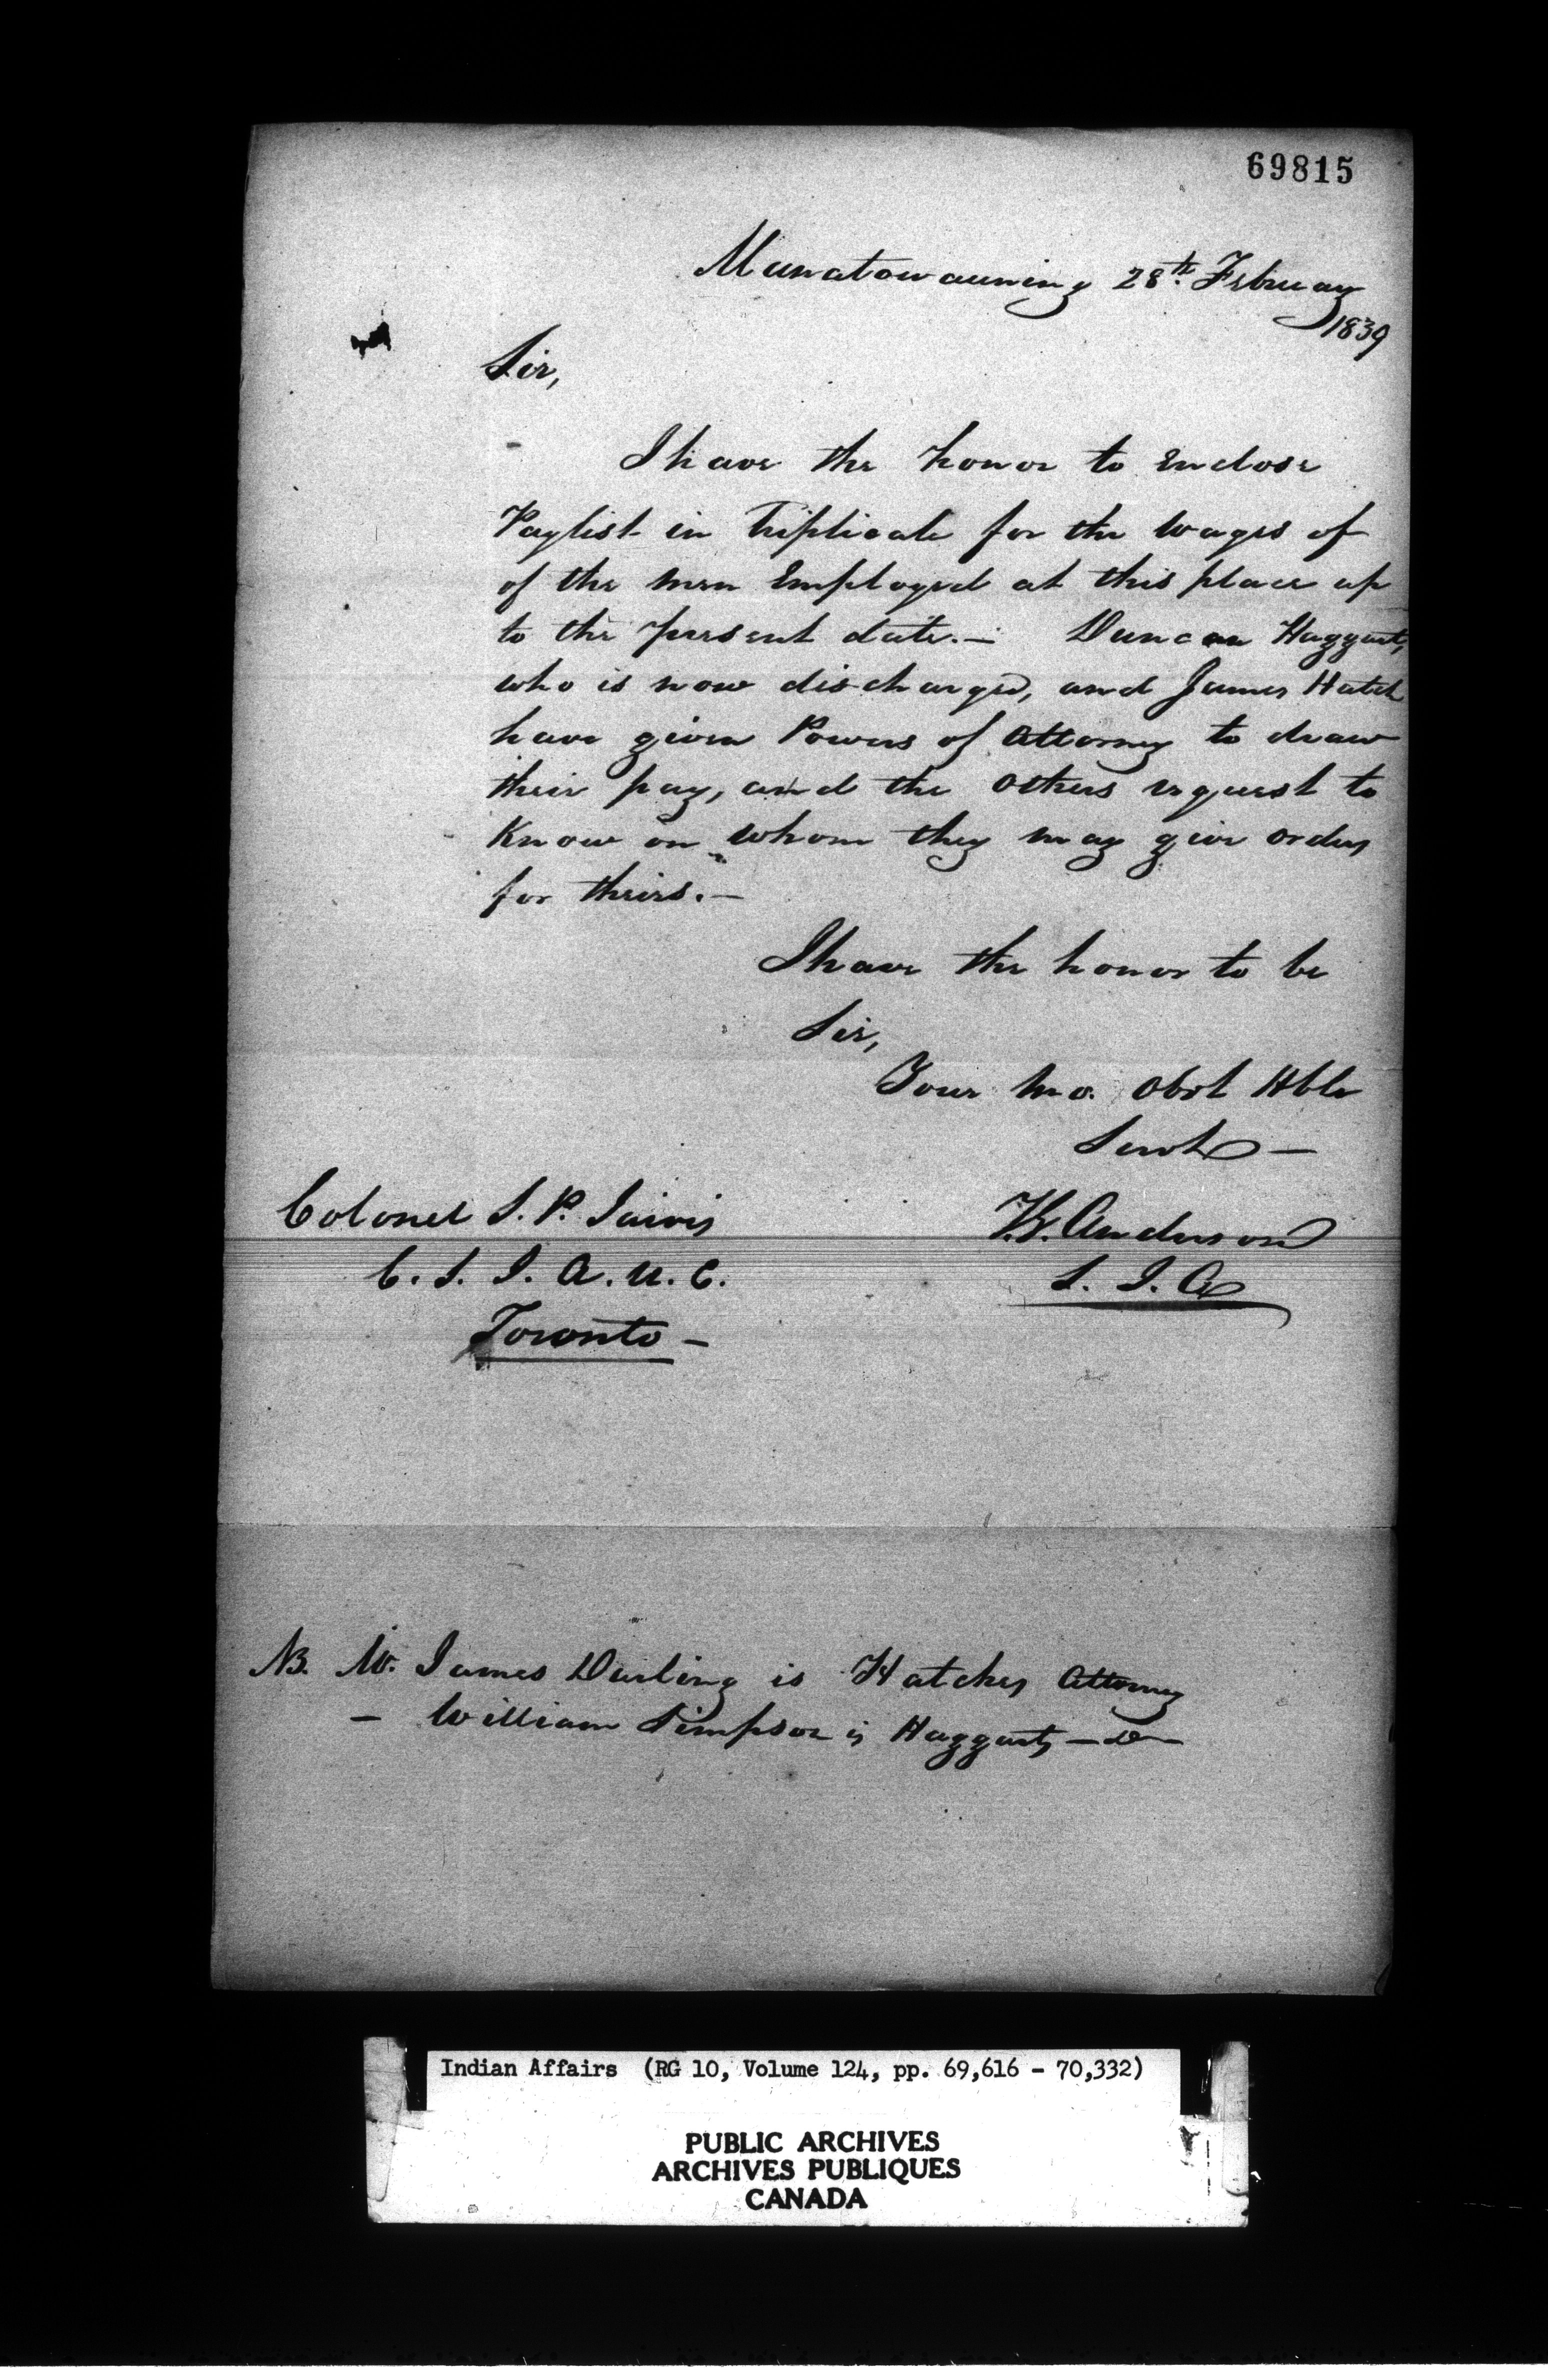 69815
Manatowauning 28th. February
1839
Sir,
I have the honor to enclose
Paylist in Triplicate for the Wages of
of the men Employed at this place up
to the present date.— Duncan Haggart,
who is now discharged, and James Hatch
have given Powers of Attorney to draw
their pay, and the others request to
Know on whom they may give orders
for theirs.—
I have the honor to be
Sir,
Your Mo. Obdt Hble
Servt —
T.G. Anderson
S. I. A
Colonel S. P. Jarvis
C. S. I. A. U. C.
Toronto —
NB. Mr. James Darling is Hatches Attorney
— William Simpson is Haggarts — Do —
Indian Affairs (RG 10, Volume 124, pp. 69,616 - 70,332)
PUBLIC ARCHIVES
ARCHIVES PUBLIQUES
CANADA